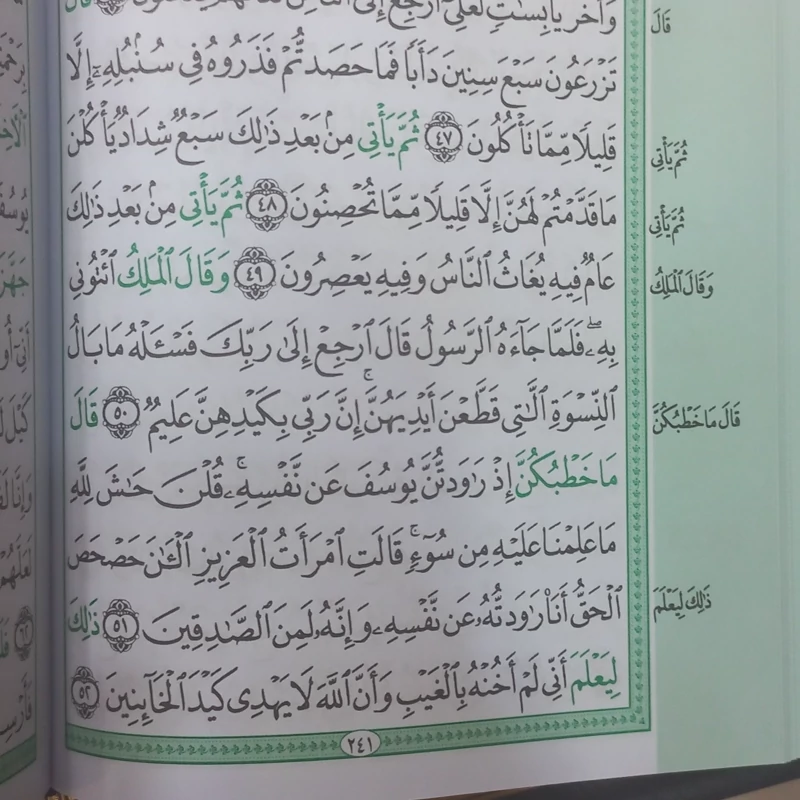 وَأُخَرَ يَابِسَٰتٍ لَّعَلِّىٓ أَرْجِعُ إِلَى ٱلنَّاسِ لَعَلَّهُمْ يَعْلَمُونَ ٤٦ قَالَ
تَزْرَعُونَ سَبْعَ سِنِينَ دَأَبًا فَمَا حَصَدتُّمْ فَذَرُوهُ فِى سُنۢبُلِهِۦٓ إِلَّا
قَلِيلًا مِّمَّا تَأْكُلُونَ ٤٧ ثُمَّ يَأْتِى مِنۢ بَعْدِ ذَٰلِكَ سَبْعٌ شِدَادٌ يَأْكُلْنَ
مَا قَدَّمْتُمْ لَهُنَّ إِلَّا قَلِيلًا مِّمَّا تُحْصِنُونَ ٤٨ ثُمَّ يَأْتِى مِنۢ بَعْدِ ذَٰلِكَ
عَامٌ فِيهِ يُغَاثُ ٱلنَّاسُ وَفِيهِ يَعْصِرُونَ ٤٩ وَقَالَ ٱلْمَلِكُ ٱئْتُونِى
بِهِۦ ۖ فَلَمَّا جَآءَهُ ٱلرَّسُولُ قَالَ ٱرْجِعْ إِلَىٰ رَبِّكَ فَسْـَٔلْهُ مَا بَالُ
ٱلنِّسْوَةِ ٱلَّٰتِى قَطَّعْنَ أَيْدِيَهُنَّ ۚ إِنَّ رَبِّى بِكَيْدِهِنَّ عَلِيمٌ ٥٠ قَالَ
مَا خَطْبُكُنَّ إِذْ رَٰوَدتُّنَّ يُوسُفَ عَن نَّفْسِهِۦ ۚ قُلْنَ حَٰشَ لِلَّهِ
مَا عَلِمْنَا عَلَيْهِ مِن سُوٓءٍ ۚ قَالَتِ ٱمْرَأَتُ ٱلْعَزِيزِ ٱلْـَٰٔنَ حَصْحَصَ
ٱلْحَقُّ أَنَا۠ رَٰوَدتُّهُۥ عَن نَّفْسِهِۦ وَإِنَّهُۥ لَمِنَ ٱلصَّٰدِقِينَ ٥١ ذَٰلِكَ
لِيَعْلَمَ أَنِّى لَمْ أَخُنْهُ بِٱلْغَيْبِ وَأَنَّ ٱللَّهَ لَا يَهْدِى كَيْدَ ٱلْخَآئِنِينَ ٥٢
٢٤١
قَالَ
ثُمَّ يَأْتِى
ثُمَّ يَأْتِى
وَقَالَ ٱلْمَلِكُ
قَالَ مَا خَطْبُكُنَّ
ذَٰلِكَ لِيَعْلَمَ